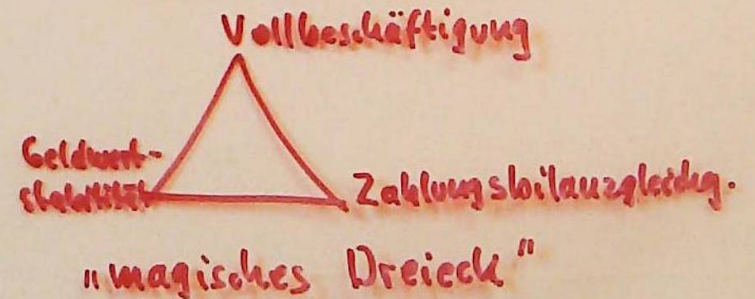 Vollbeschäftigung
Geldwert-
stabilität
Zahlungsbilanzgleichg.
„magisches Dreieck"